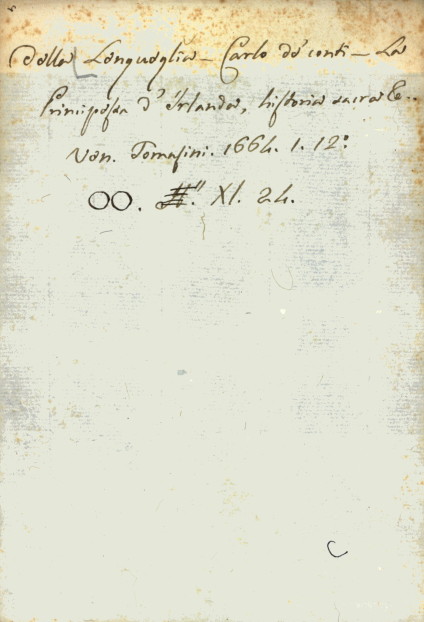 Della Lengueglia – Carlo de' conti – La
Principessa d'Irlanda, historia sacra &c..
Ven. Tomasini. 1664. 1. 12º
OO. XI. 24.
C